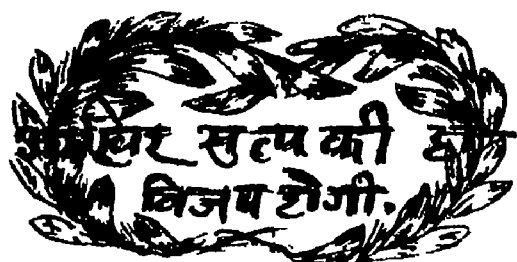 आखिर सत्य की ही
विजय होगी.